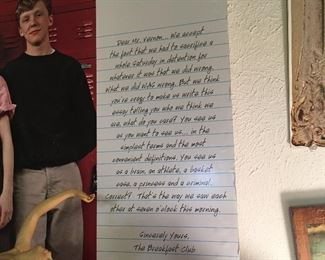 Dear Mr. Vernon... We accept
the fact that we had to sacrifice a
whole Saturday in detention for
whatever it was that we did wrong.
What we did WAS wrong. But we think
you're crazy to make us write this
essay telling you who we think we
are, what do you care? You see us
as you want to see us... in the
simplest terms and the most
convenient definitions. You see us
as a brain, an athlete, a basket
case, a princess and a criminal.
Correct? That's the way we saw each
other at seven o'clock this morning.
Sincerely Yours,
The Breakfast Club